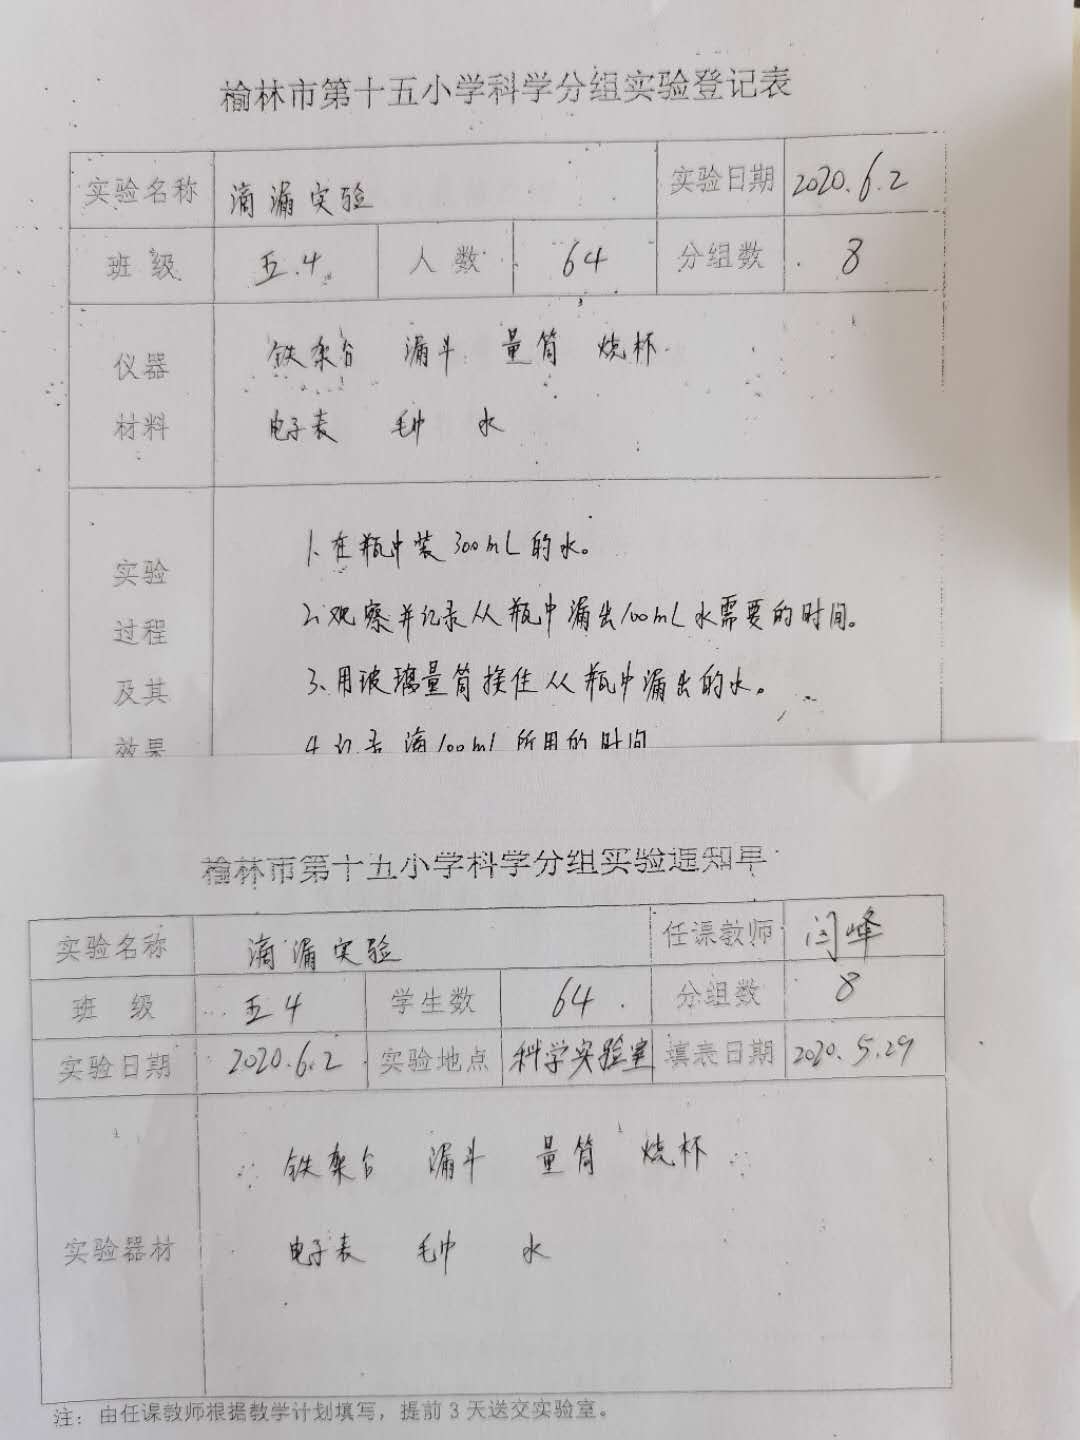 榆林市第十五小学科学分组实验登记表
实验名称 滴漏实验 实验日期 2020.6.2
班 级 五.4 人 数 64 分组数 8
仪器 铁架台 漏斗 量筒 烧杯
材料 电子表 毛巾 水
1、在瓶中装300mL的水。
实验
2、观察并记录从瓶中漏出100mL水需要的时间。
过程
3、用玻璃量筒接住从瓶中漏出的水。
及其
4、记录滴100mL所用的时间
效果
榆林市第十五小学科学分组实验通知单
实验名称 滴漏实验 任课教师 闫峰
班 级 五4 学生数 64 分组数 8
实验日期 2020.6.2 实验地点 科学实验室 填表日期 2020.5.29
铁架台 漏斗 量筒 烧杯
实验器材 电子表 毛巾 水
注：由任课教师根据教学计划填写，提前3天送交实验室。